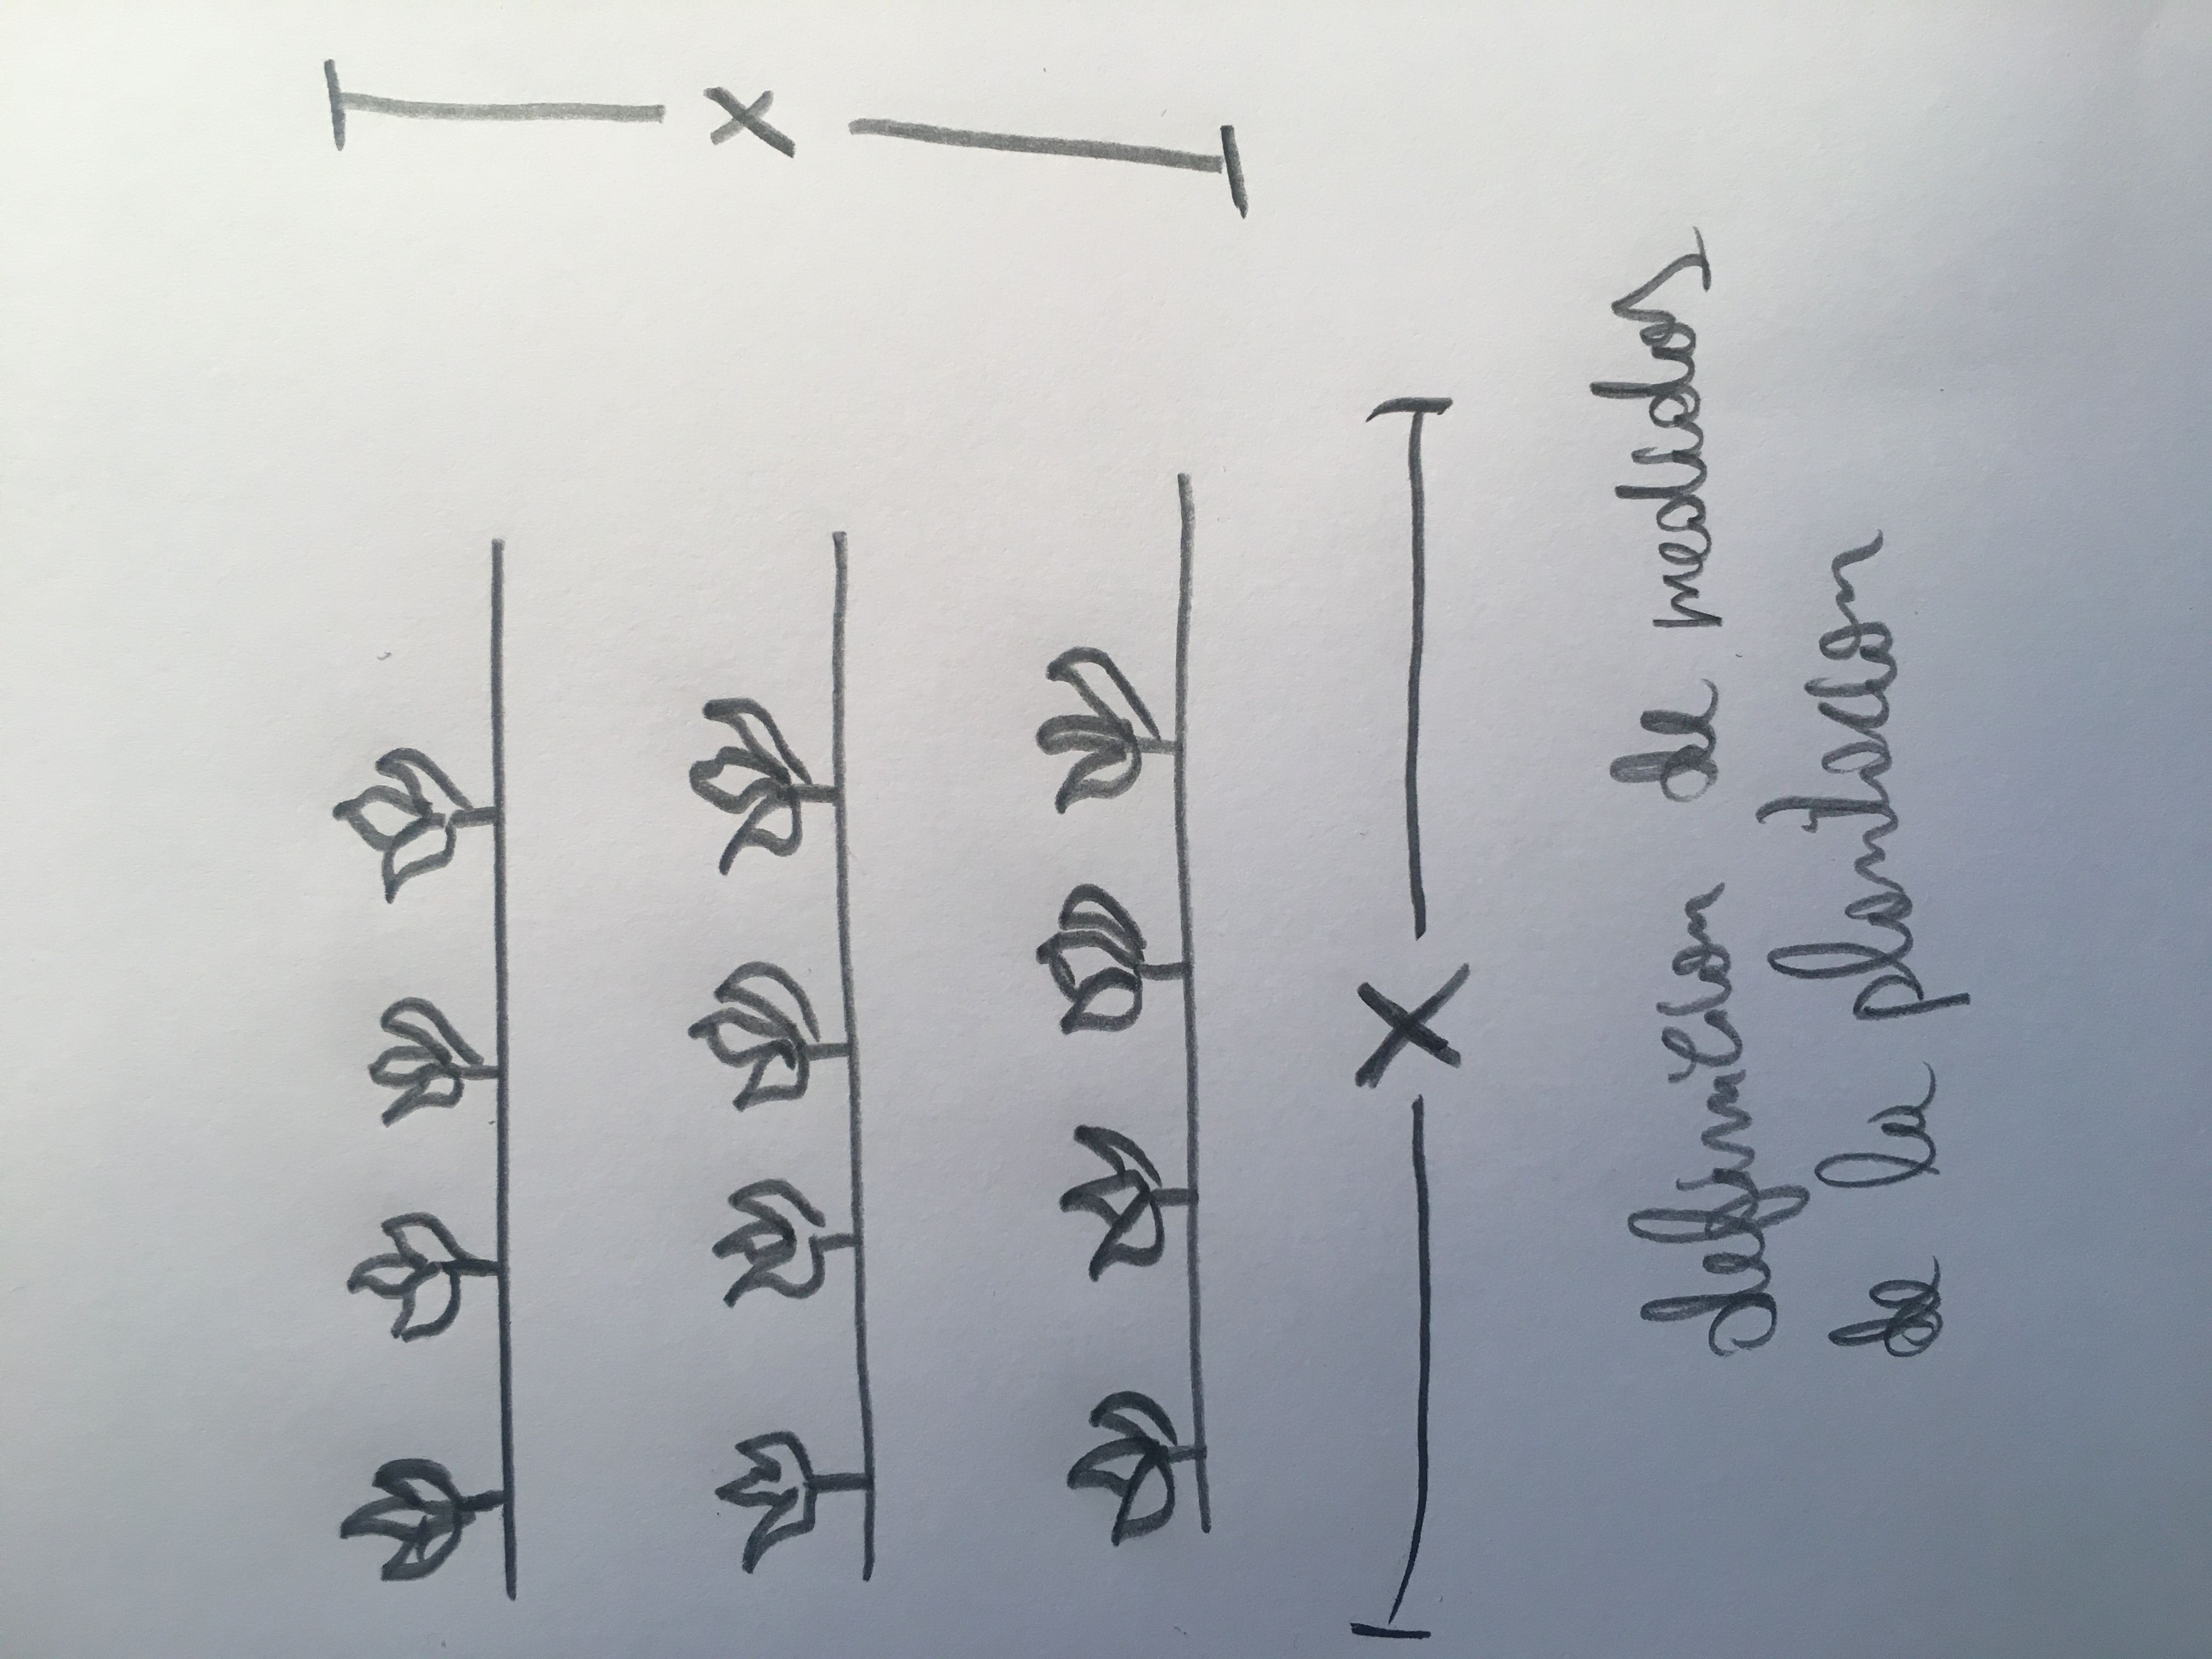 X
X
definicion de medidas
de la plantacion